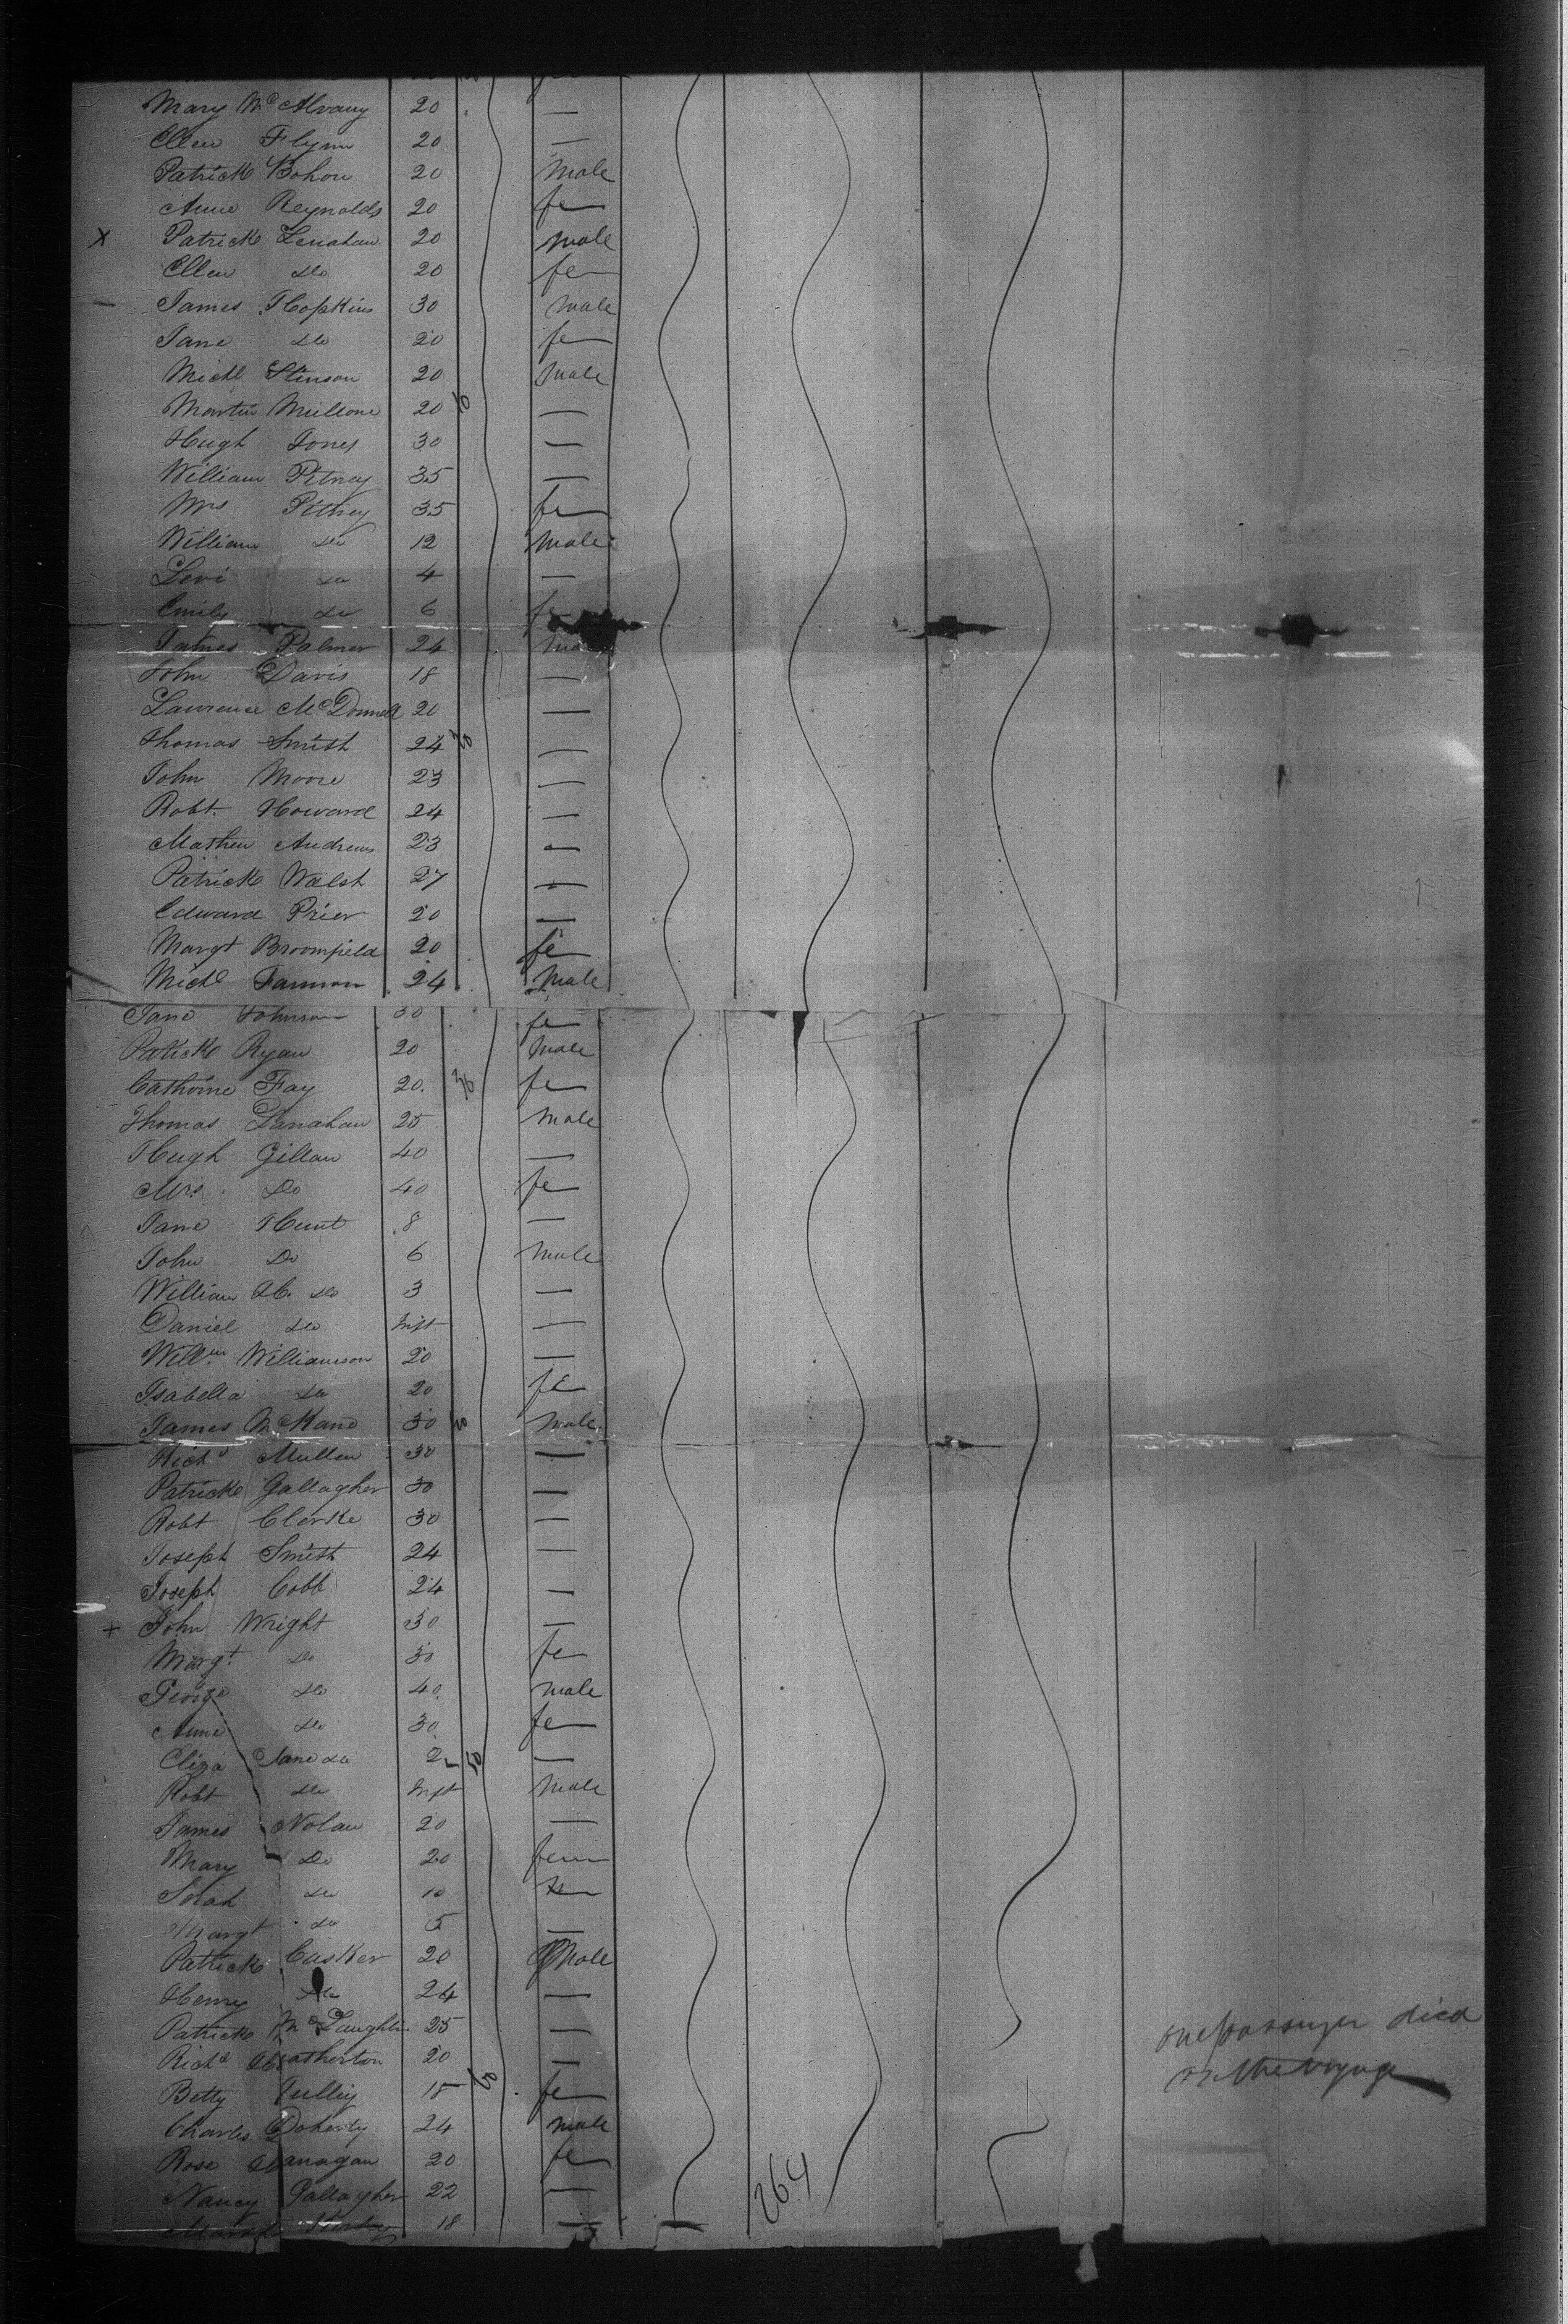 Mary McAlvany 20 —
Ellen Flynn 20 —
Patrick Bohon 20 Male
Anne Reynolds 20 fe
X Patrick Lenahan 20 male
Ellen do 20 fe
— James Hopkins 30 male
Jane do 20 fe
Michl Stinson 20 Male
Martin Mullone 20 —
Hugh Jones 30 —
William Pitney 35 —
Mrs Pitney 35 fe
William do 12 Male
Levi do 4 —
Emily do 6 fe
James Palmer 24
John Davis 18 —
Laurence McDonnell 20 —
Thomas Smith 24 —
John Moore 23 —
Robt. Howard 24 —
Mathew Andrews 23 —
Patrick Walsh 27 —
Edward Prier 20 —
Margt Broomfield 20 fe
Michl Fannon 24 Male
Jane Johnson 30 fe
Patrick Ryan 20 Male
Catherine Fay 20 fe
Thomas Lanahan 25 Male
Hugh Gillan 40 —
Mrs. Do 40 fe
Jane Hunt 8 —
John Do 6 Male
William H. do 3 —
Daniel do Inft —
Willm Williamson 20 —
Isabella do 20 fe
James McKane 30 Male
Richd Mullen 30 —
Patrick Gallagher 30 —
Robt Clerke 30 —
Joseph Smith 24 —
Joseph Cobb 24 —
+ John Wright 30 —
Margt do 30 fe
George do 40 male
Anne do 30 fe
Eliza Jane do 2 —
Robt do Inft Male
James Nolan 20 —
Mary Do 20 fem
Sarah do 10
Margt do 5 —
Patrick Casker 20 Male
Henry do 24 —
Patrick McLaughlin 25 —
Richd Heatherton 20 —
Betty 18 fe
Charles Doherty 24 male
Rose 20 fe
Nancy Gallagher 22 —
18 —
one passenger died
on the voyage
264